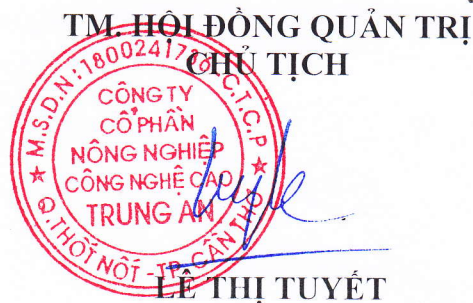 TM. HỘI ĐỒNG QUẢN TRỊ
CHỦ TỊCH
M.S.D.N: 1800241736 - C.T.C.P
CÔNG TY
CỔ PHẦN
NÔNG NGHIỆP
CÔNG NGHỆ CAO
TRUNG AN
Q. THỐT NỐT - TP. CẦN THƠ
LÊ THỊ TUYẾT